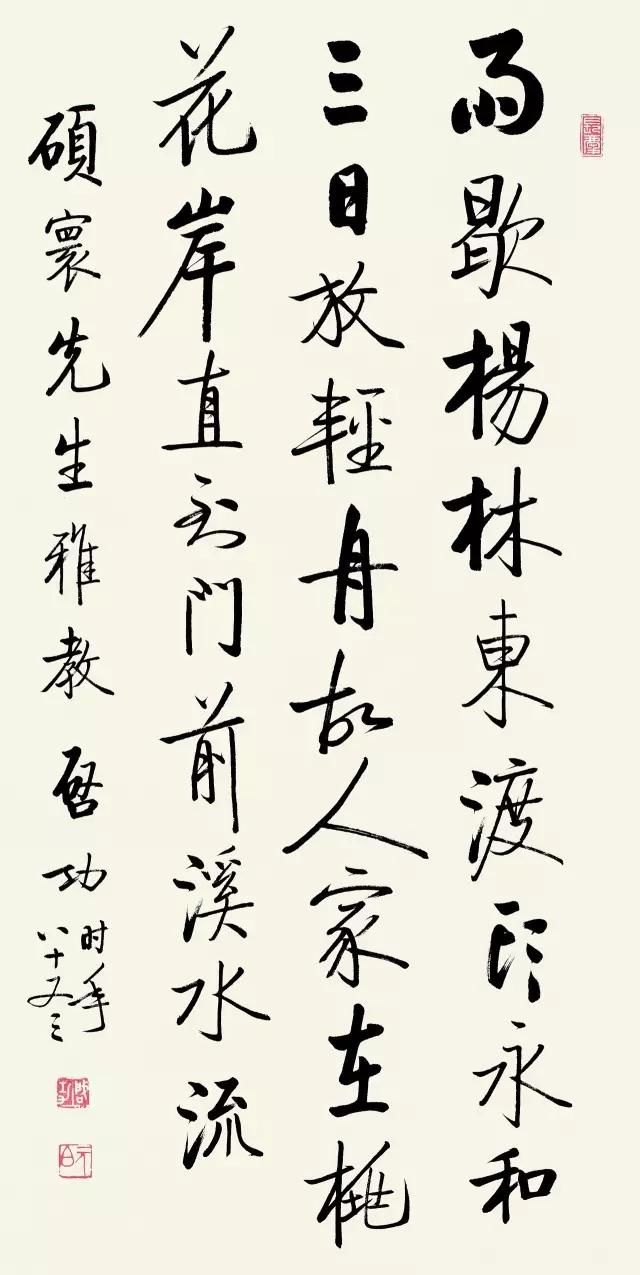 雨歇楊林東渡頭永和
三日放輕舟故人家在桃
花岸直到門前溪水流
碩寰先生雅教 啓功
时年
八十又三